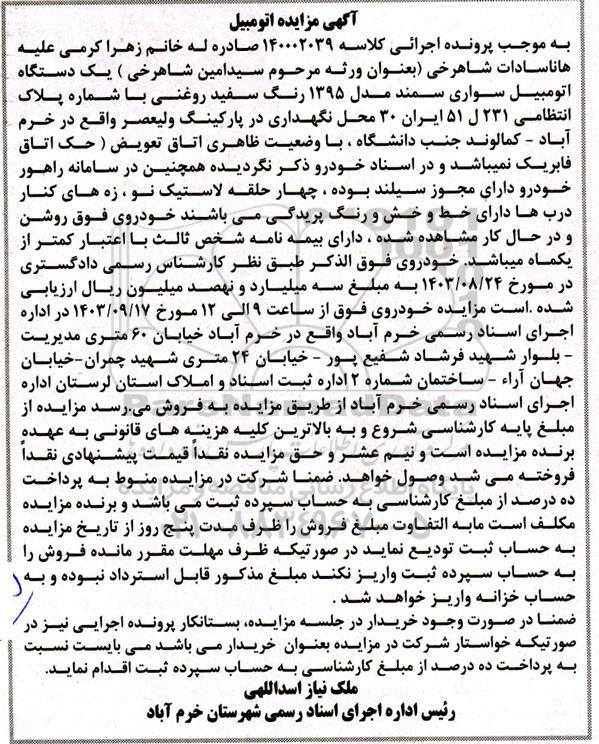 آگهی مزایده اتومبیل
به موجب پرونده اجرائی کلاسه ۱۴۰۰۰۲۰۳۹ صادره له خانم زهرا کرمی علیه
هاناسادات شاهرخی (بعنوان ورثه مرحوم سیدامین شاهرخی ) یک دستگاه
اتومبیل سواری سمند مدل ۱۳۹۵ رنگ سفید روغنی با شماره پلاک
انتظامی ۲۳۱ ل ۵۱ ایران ۳۰ محل نگهداری در پارکینگ ولیعصر واقع در خرم
آباد - کمالوند جنب دانشگاه ، با وضعیت ظاهری اتاق تعویض ( حک اتاق
فابریک نمیباشد و در اسناد خودرو ذکر نگردیده همچنین در سامانه راهور
خودرو دارای مجوز سیلند بوده ، چهار حلقه لاستیک نو ، زه های کنار
درب ها دارای خط و خش و رنگ پریدگی می باشند خودروی فوق روشن
و در حال کار مشاهده شده ، دارای بیمه نامه شخص ثالث با اعتبار کمتر از
یکماه میباشد. خودروی فوق الذکر طبق نظر کارشناس رسمی دادگستری
در مورخ ۱۴۰۳/۰۸/۲۴ به مبلغ سه میلیارد و نهصد میلیون ریال ارزیابی
شده .است مزایده خودروی فوق از ساعت ۹ الی ۱۲ مورخ ۱۴۰۳/۰۹/۱۷ در اداره
اجرای اسناد رسمی خرم آباد واقع در خرم آباد خیابان ۶۰ متری مدیریت
- بلوار شهید فرشاد شفیع پور - خیابان ۲۴ متری شهید چمران-خیابان
جهان آراء - ساختمان شماره ۲ اداره ثبت اسناد و املاک استان لرستان اداره
اجرای اسناد رسمی خرم آباد از طریق مزایده به فروش می.رسد مزایده از
مبلغ پایه کارشناسی شروع و به بالاترین کلیه هزینه های قانونی به عهده
برنده مزایده است و نیم عشر و حق مزایده نقداً قیمت پیشنهادی نقداً
فروخته می شد وصول خواهد. ضمنا شرکت در مزایده منوط به پرداخت
ده درصد از مبلغ کارشناسی به حساب سپرده ثبت می باشد و برنده مزایده
مکلف است مابه التفاوت مبلغ فروش را ظرف مدت پنج روز از تاریخ مزایده
به حساب ثبت تودیع نماید در صورتیکه ظرف مهلت مقرر مانده فروش را
به حساب سپرده ثبت واریز نکند مبلغ مذکور قابل استرداد نبوده و به
حساب خزانه واریز خواهد شد .
ضمنا در صورت وجود خریدار در جلسه مزایده، بستانکار پرونده اجرایی نیز در
صورتیکه خواستار شرکت در مزایده بعنوان خریدار می باشد می بایست نسبت
به پرداخت ده درصد از مبلغ کارشناسی به حساب سپرده ثبت اقدام نماید.
ملک نیاز اسداللهی
رئیس اداره اجرای اسناد رسمی شهرستان خرم آباد